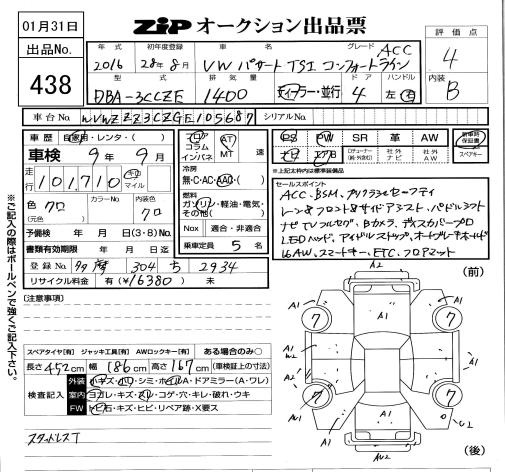 01月31日
出品No.
438
ZiP オークション出品票
評価点
4
内装
B
年式 初年度登録 車名 グレード ACC
2016 28年8月 VW パサート TSI コンフォートライン
型式 排気量 ドア ハンドル
DBA-3CCZE 1400 ディーラー・並行 4 左 右
車台No. WVWZZZ3CZGE105687 シリアルNo.
車歴 自家用・レンタ・( )
車検 9年 9月
走行 101,710 キロ マイル
色 クロ (元色) カラーNo. 内装色 クロ
予備検 年 月 日(3・8)No.
書類有効期限 年 月 日迄
登録No. 多摩 304 ち 2934
リサイクル料金 有(¥16380) 未
フロア コラム インパネ
AT MT 速
冷房
無・C・AC・AAC( )
燃料
ガソリン・軽油・電気・その他( )
Nox 適合・非適合
乗車定員 5 名
PS PW SR 革 AW
ロデューナー(純・外含む) 社外ナビ 社外AW
新車時保証書
スペアキー
※上記太枠内は標準装備品
セールスポイント
ACC、BSM、プリクラッシュセーフティ
レーンフロント&サイドアシスト、パドルシフト
ナビTVフルセグ、Bカメラ、ディスカバープロ
LEDヘッド、アイドルストップ、オートブレーキホールド
16AW、スマートキー、ETC、フロアマット
※ご記入の際はボールペンで強くご記入下さい。
(注意事項)
スペアタイヤ[有] ジャッキ工具[有] AWロックキー[有] ある場合のみ○
長さ452cm 幅186cm 高さ167cm (車検証上の寸法)
検査記入
外装 小キズ・凹・シミ・ホイルA・ドアミラー(A・ワレ)
室内 ヨゴレ・キズ・スレ・コゲ・穴・キレ・破れ・ウキ
FW トビ石・キズ・ヒビ・リペア跡・X要ス
スタッドレスT
(前)
A2
A1
7
7
A1
A1
A1
A2
A1
A1
7
7
A1
A1
(後)